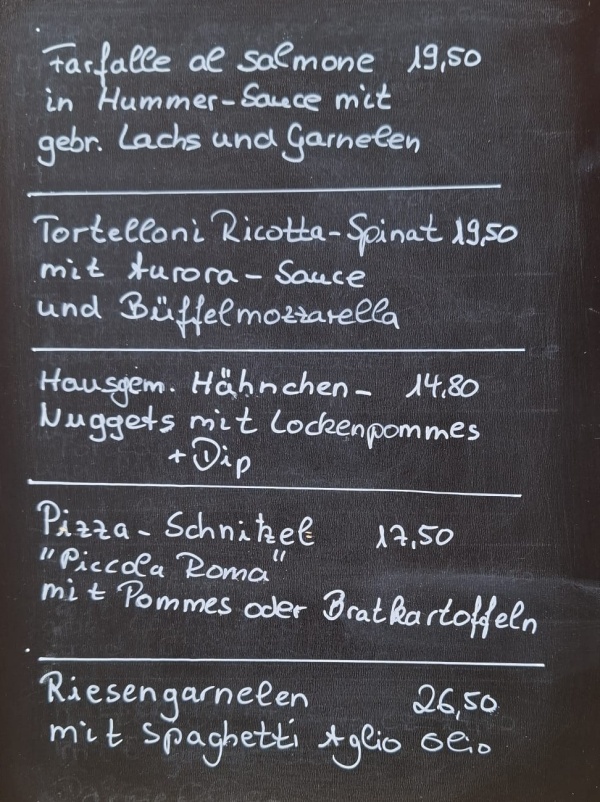 Farfalle al salmone 19,50
in Hummer-Sauce mit
gebr. Lachs und Garnelen
Tortelloni Ricotta-Spinat 19,50
mit Aurora-Sauce
und Büffelmozzarella
Hausgem. Hähnchen- 14,80
Nuggets mit Lockenpommes
+ Dip
Pizza-Schnitzel 17,50
"Piccola Roma"
mit Pommes oder Bratkartoffeln
Riesengarnelen 26,50
mit Spaghetti Aglio Olio